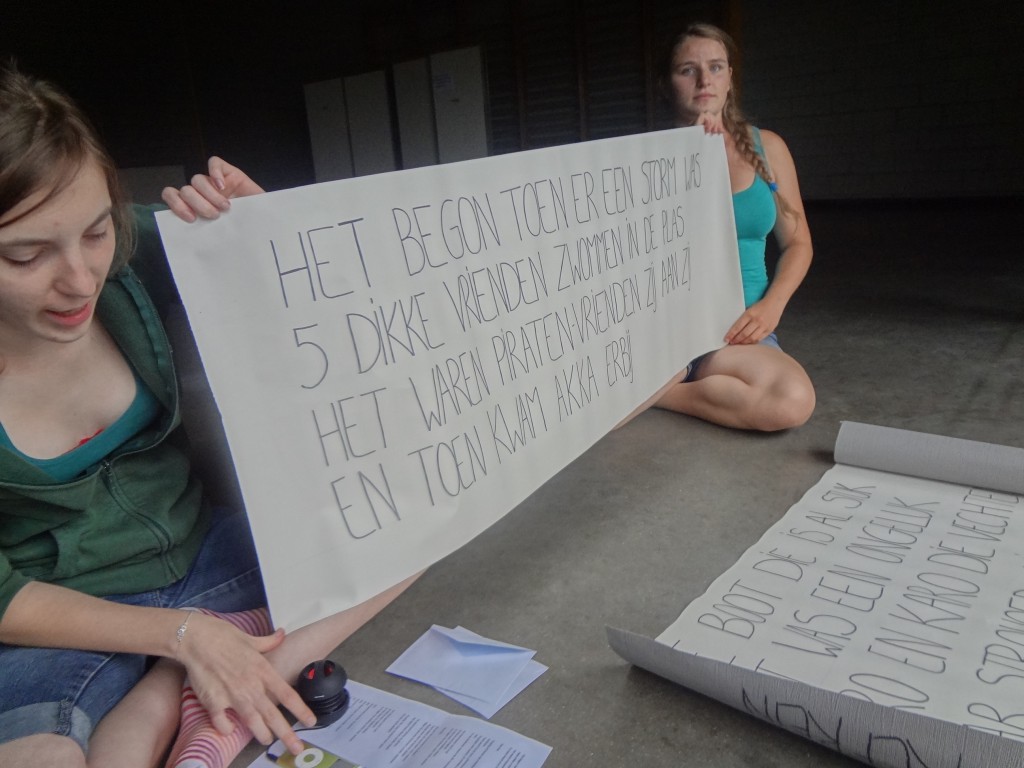 HET BEGON TOEN ER EEN STORM WAS
5 DIKKE VRIENDEN ZWOMMEN IN DE PLAS
HET WAREN PIRATEN-VRIENDEN ZIJ HAN ZIJ
EN TOEN KWAM AKKA ERBIJ
BOOT DIE IS AL STUK
WAS EEN ONGELUK
RO EN KARO DIE VECHTE